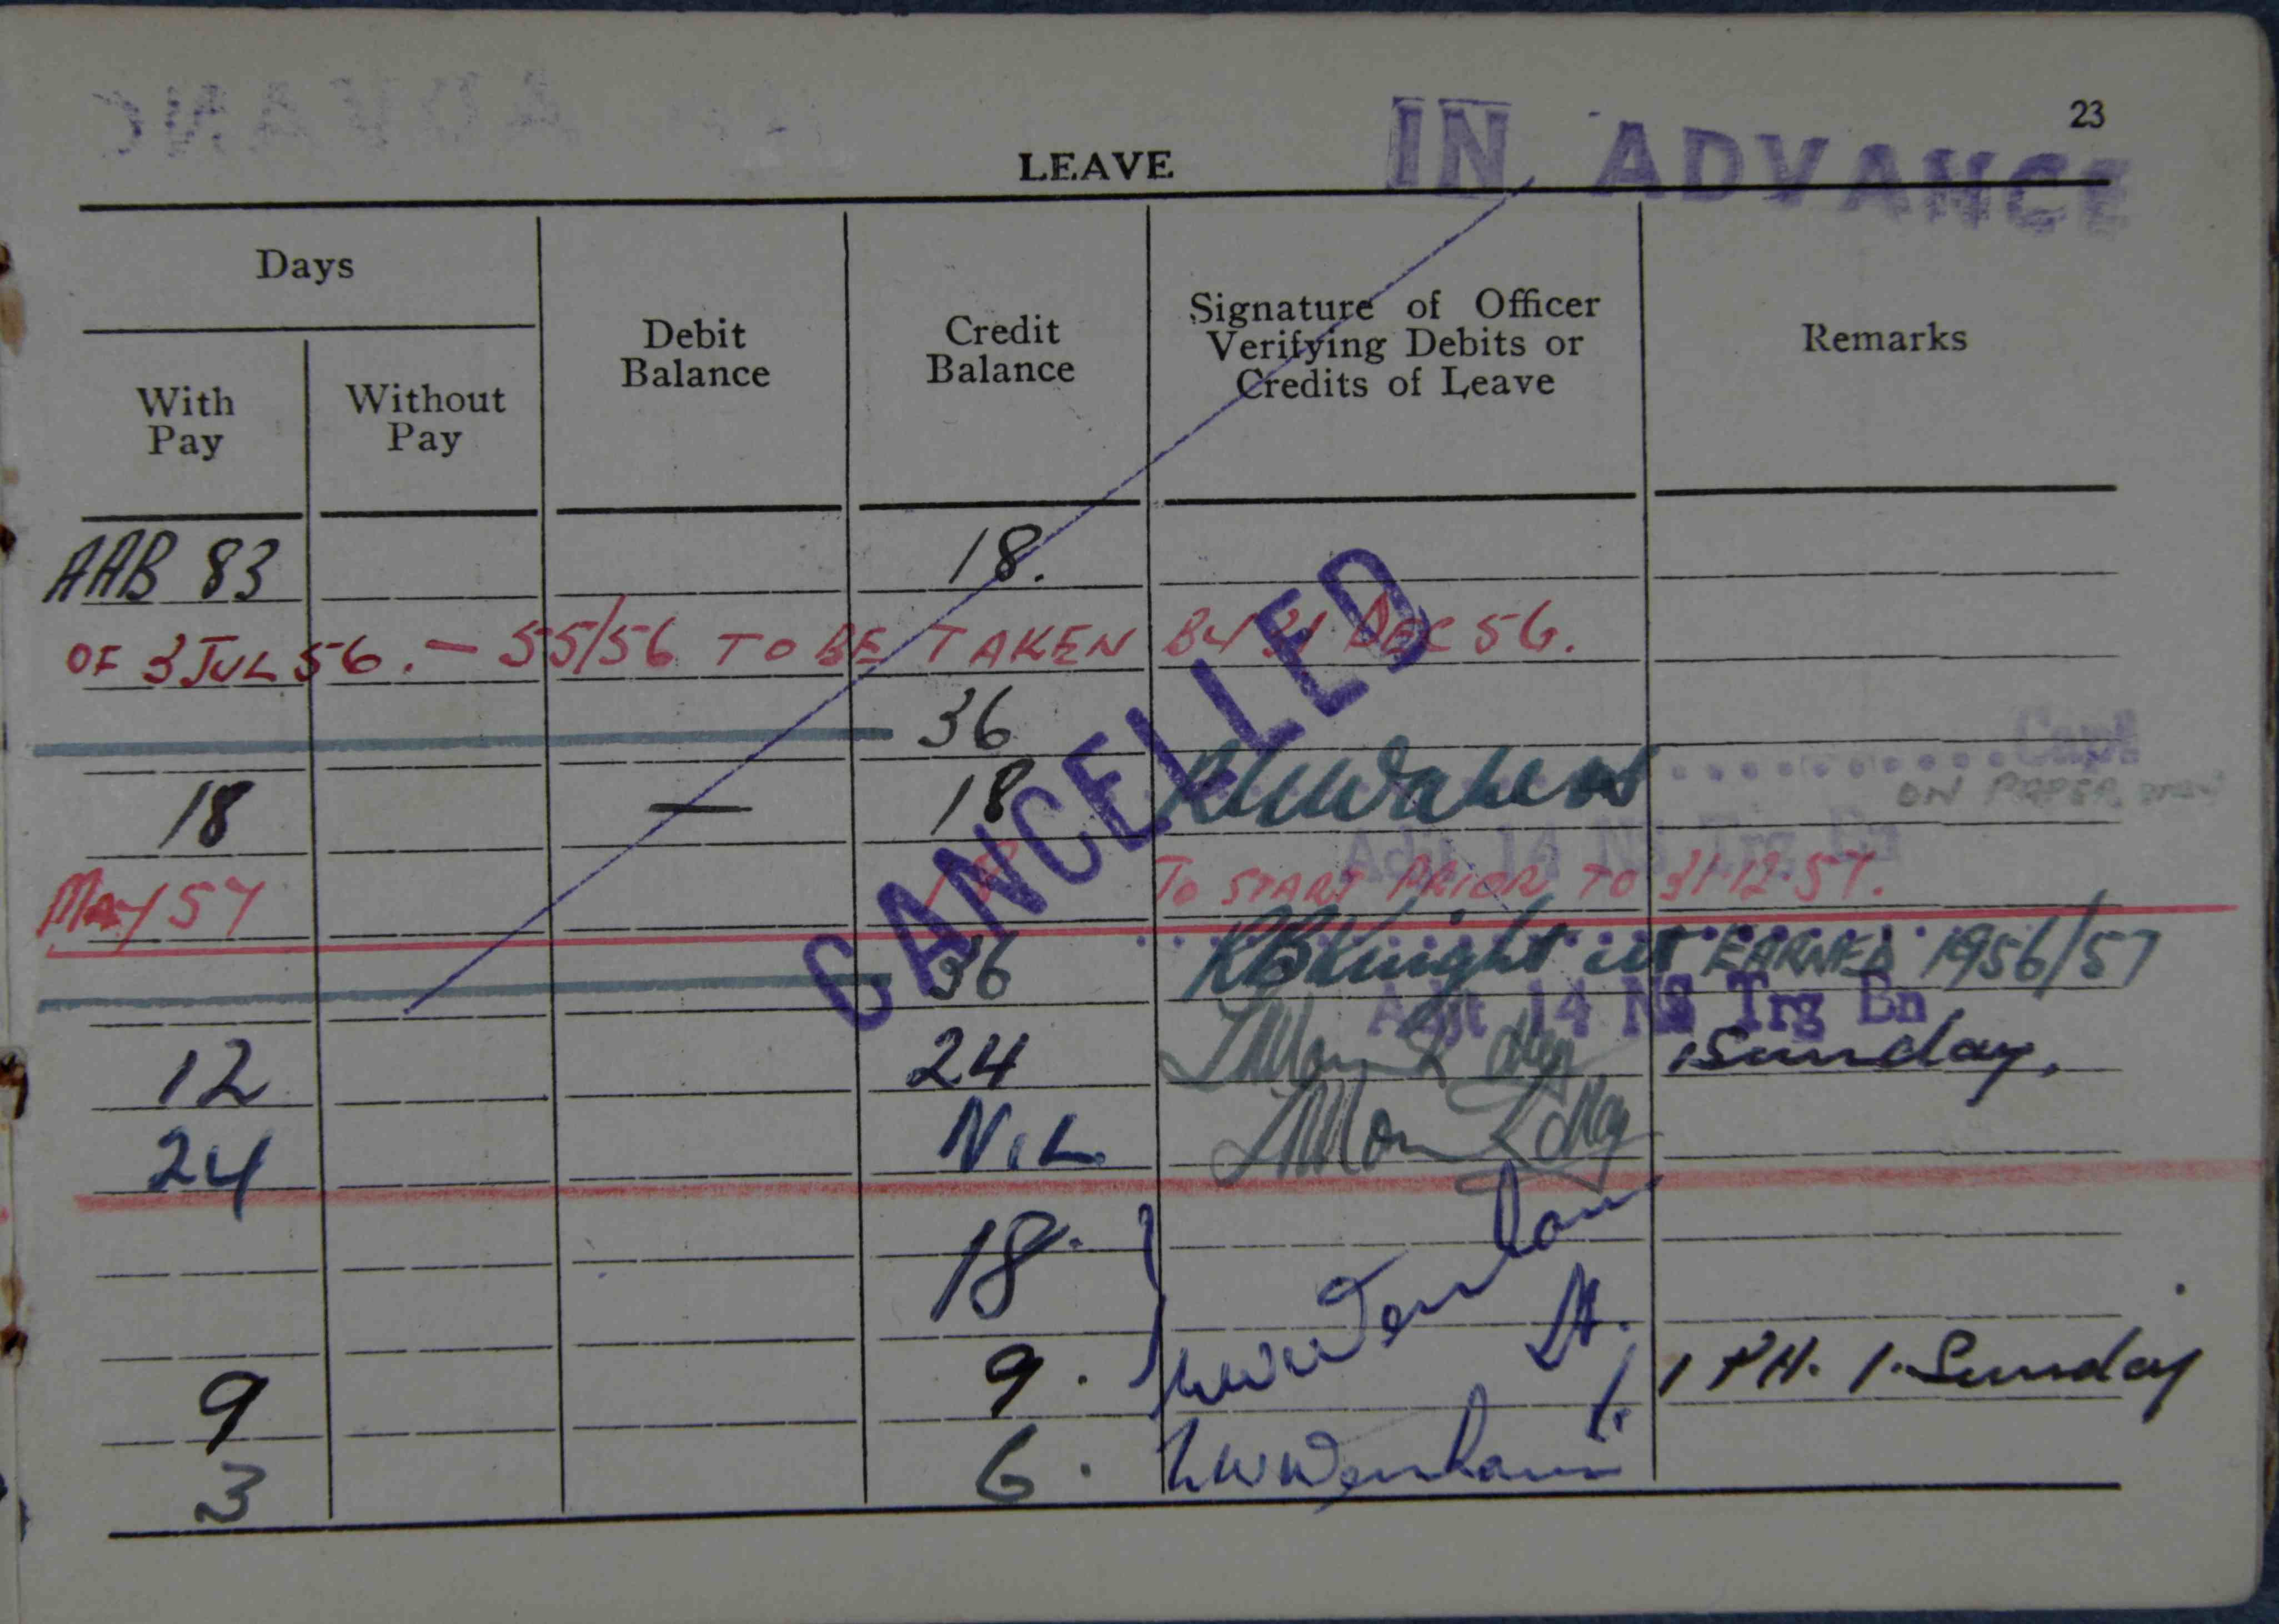 23
IN ADVANCE
LEAVE
Days
With Pay
Without Pay
Debit Balance
Credit Balance
Signature of Officer Verifying Debits or Credits of Leave
Remarks
AAB 83 18.
OF 3 JUL 56. — 55/56 TO BE TAKEN BY 31 DEC 56.
36
Capt
ON PAPER
18 — 18
Adjt 14 NS Trg Bn
MAY 57 18 TO START PRIOR TO 31-12-57.
CANCELLED
36 RBKnight Lt EARNED 1956/57
Adjt 14 NS Trg Bn
12 24 1 Sunday.
24 NIL
18.
Lt.
9 9. 1 PH. 1. Sunday
3 6. Wenham